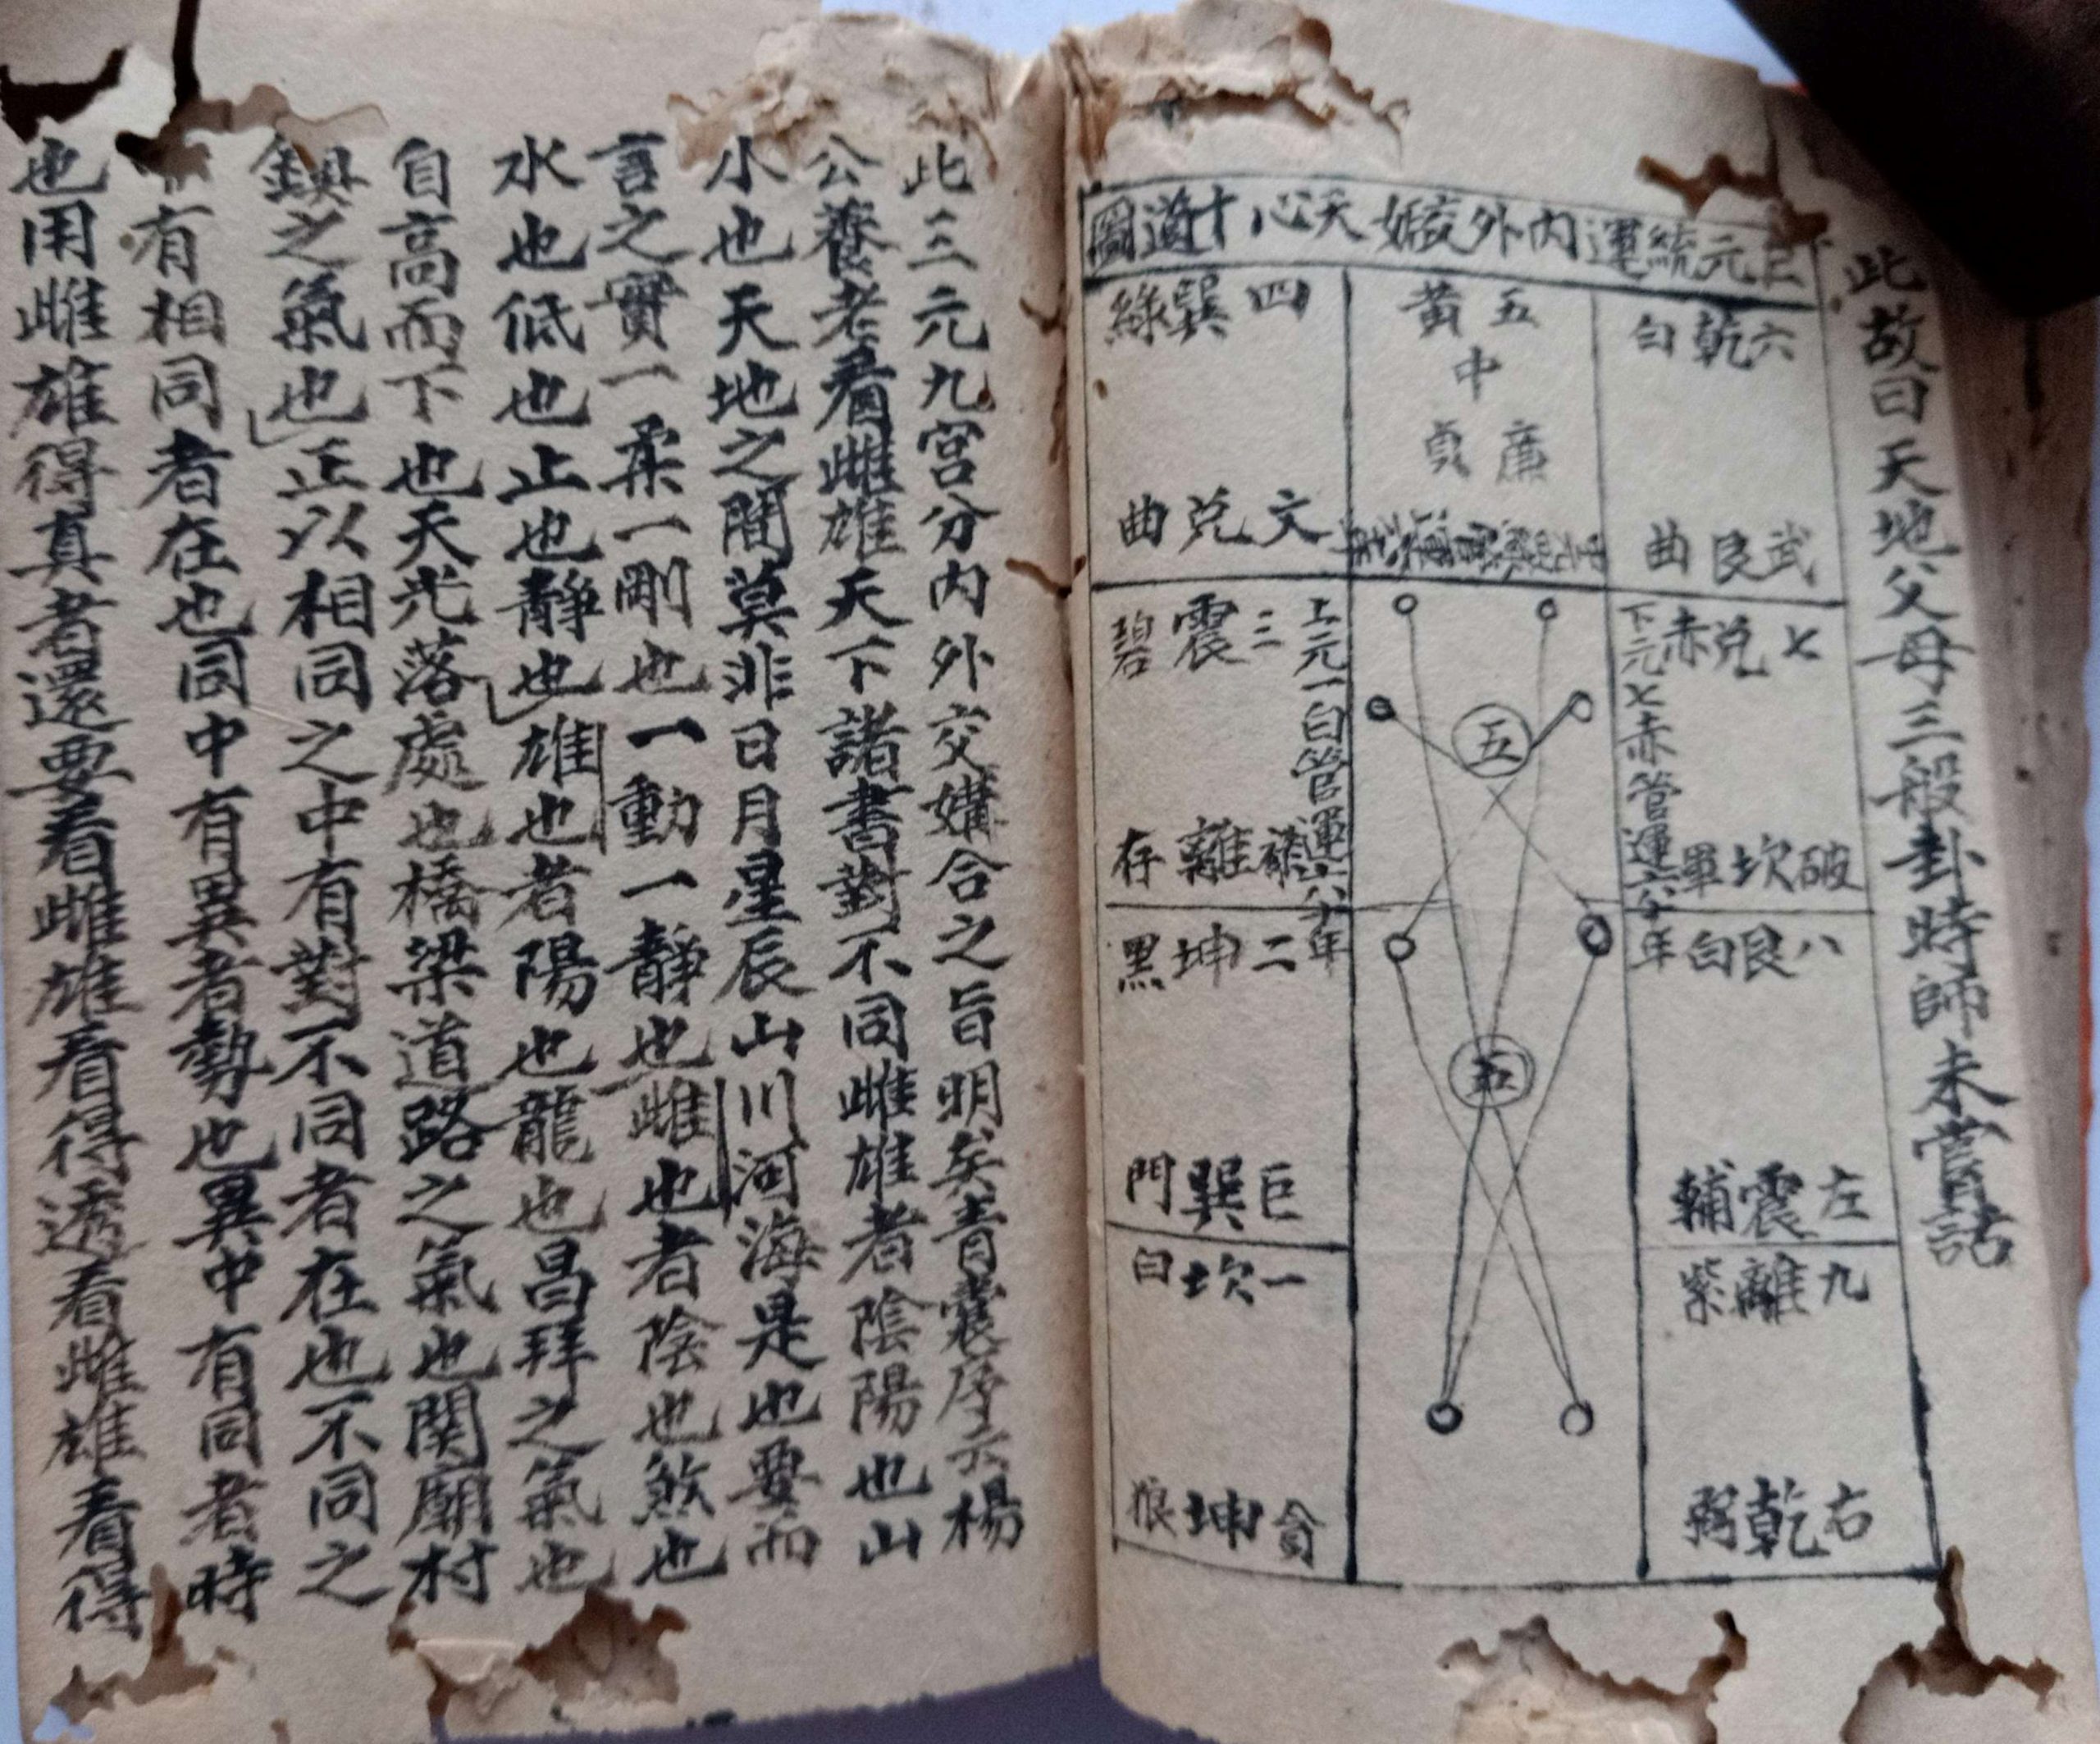 此故曰天地父母三般卦時師未嘗話
巨元統運內外媾交天心十道圖
六乾白
武艮曲
五黃
中
廉貞
四巽綠
文兌曲
七兌赤
下元七赤管運六十年
破坎軍
上元一白管運六十年
三震碧
祿離存
五
八艮白
左震輔
二坤黑
巨巽門
五
九離紫
右乾弼
一坎白
貪坤狼
此三元九宮分內外交媾合之旨明矣青囊序云楊
公養老看雌雄天下諸書對不同雌雄者陰陽也山
小也天地之間莫非日月星辰山川河海是也要而
言之實一柔一剛也一動一靜也雌也者陰也煞也
水也低也止也靜也雄也者陽也龍也昌拜之氣也
自高而下也天光落處也橋梁道路之氣也関廟村
鎮之氣也正以相同之中有對不同者在也不同之
有相同者在也同中有異者勢也異中有同者時
也用雌雄得真者還要看雌雄看得透看雌雄看得